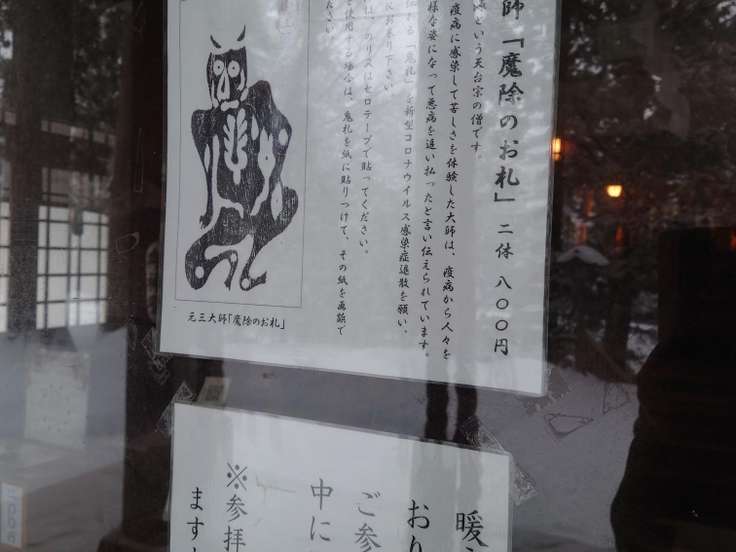 師「魔除のお札」 二体 八〇〇円
源という天台宗の僧です。
疫病に感染して苦しさを体験した大師は、疫病から人々を
様な姿になって悪病を追い払ったと言い伝えられています。
「鬼札」を新型コロナウイルス感染症退散を願い、
にお参り下さい。
のリスはセロテープで貼ってください。
使用する場合は、鬼札を紙に貼りつけて、その紙を画鋲で
ださい
元三大師「魔除のお札」
暖
おり
ご参
中に
※参拝
ます